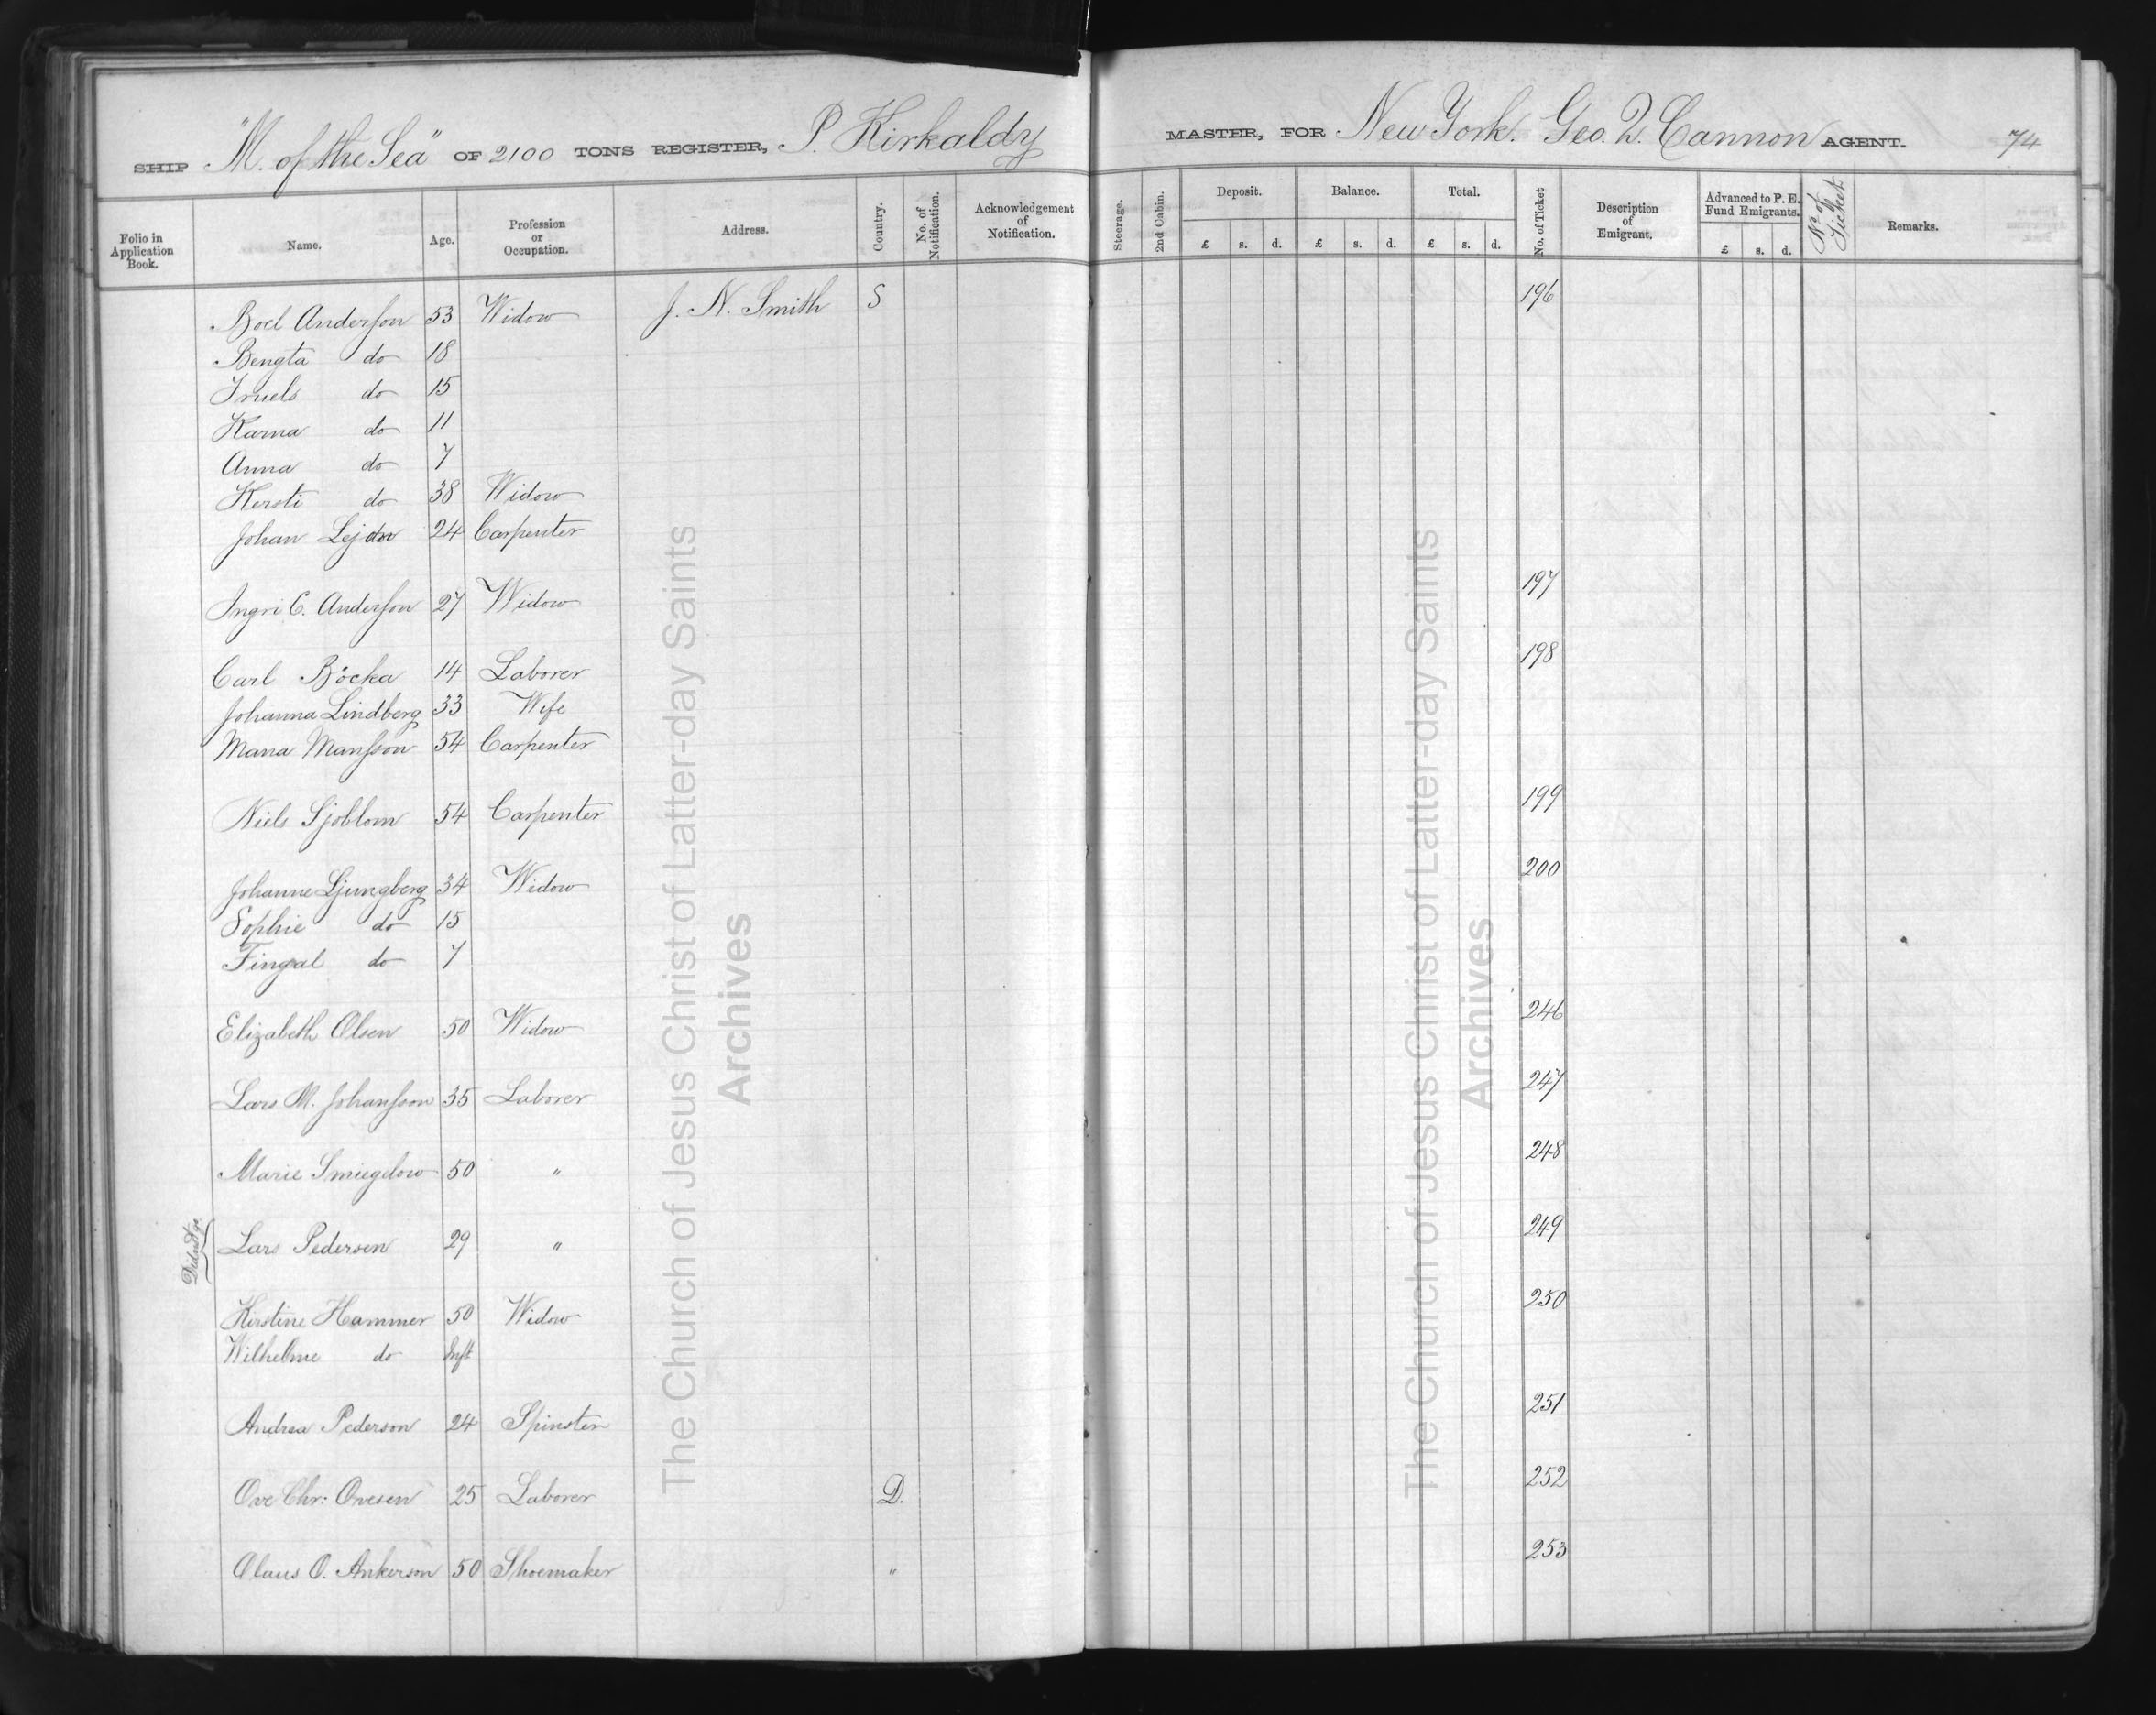 SHIP "M. of the Sea" OF 2100 TONS REGISTER, P. Kirkaldy MASTER, FOR New York. Geo. Q. Cannon AGENT. 74
Folio in Application Book. Name. Age. Profession or Occupation. Address. Country. No. of Notification. Acknowledgement of Notification. Steerage. 2nd Cabin. Deposit. £ s. d. Balance. £ s. d. Total. £ s. d. No. of Ticket Description of Emigrant. Advanced to P. E. Fund Emigrants. £ s. d. No of Ticket Remarks.
Boel Anderson 53 Widow J. N. Smith S 196
Bengta do 18
Truels do 15
Karna do 11
Anna do 7
Kersti do 38 Widow
Johan 24 Carpenter
Ingri C. Anderson 27 Widow 197
Carl Böcka 14 Laborer 198
Johanna Lindberg 33 Wife
Mana Mansson 54 Carpenter
Niels Sjoblom 54 Carpenter 199
Johanne Ljungberg 34 Widow 200
Sophie do 15
Fingal do 7
Elizabeth Olsen 50 Widow 246
Lars M. Johansson 35 Laborer 247
Marie Smiegelow 50 " 248
Lars Pedersen 29 " 249
Kirstine Hammer 50 Widow 250
Wilhelme do Inft
Andrea Pederson 24 Spinster 251
Ove Chr: Ovesen 25 Laborer D. 252
Claus O. Ankerson 50 Shoemaker " 253
The Church of Jesus Christ of Latter-day Saints
Archives
The Church of Jesus Christ of Latter-day Saints
Archives